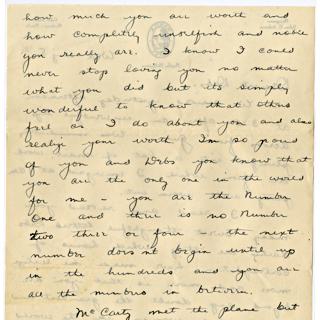 how much you are worth and
how completely unselfish and noble
you really are. I know I could
never stop loving you no matter
what you did but its simply
wonderful to know that others
feel as I do about you and also
realize your worth I'm so proud
of you and Debs you know that
you are the only one in the world
for me - you are the Number
One and there is no Number
two three or four - the next
number doesnt begin until up
in the hundreds and you are
all the numbers in between.
McCarty met the plane but